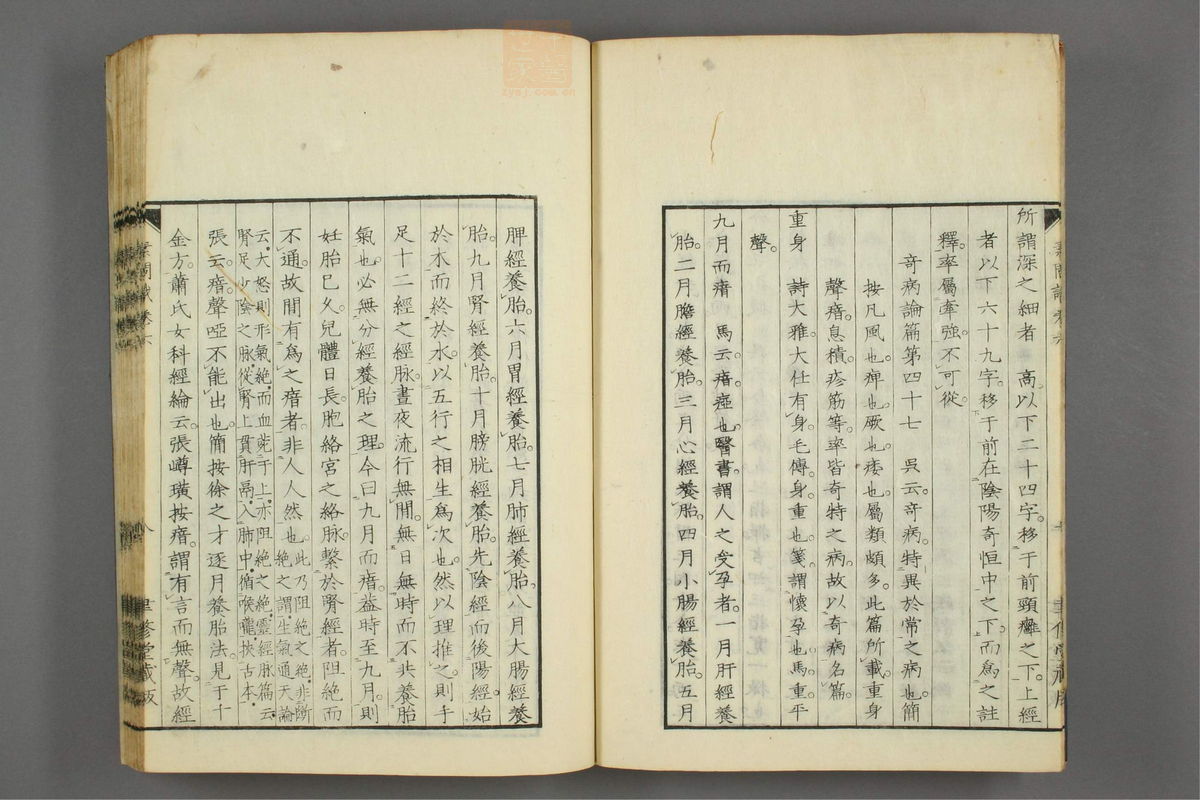 所謂深之細者 高以下二十四字移于前頸癰之下上經
者以下六十九字移于前在陰陽奇恒中之下而為之註
釋率屬牽強不可從
奇病論篇第四十七 吳云奇病特異於常之病也簡
按凡風也痺也厥也痿也屬類頗多此篇所載重身
聲瘖息積疹筋等率皆奇特之病故以奇病名篇
重身 詩大雅大任有身毛傳身重也箋謂懷孕也馬重平
聲
九月而瘖 馬云瘖瘂也醫書謂人之受孕者一月肝經養
胎二月膽經養胎三月心經養胎四月小腸經養胎五月
脾經養胎六月胃經養胎七月肺經養胎八月大腸經養
胎九月腎經養胎十月膀胱經養胎先陰經而後陽經始
於木而終於水以五行之相生為次也然以理推之則手
足十二經之經脉晝夜流行無間無日無時而不共養胎
氣也必無分經養胎之理今曰九月而瘖蓋時至九月則
妊胎已久兒體日長胞絡宮之絡脉繫於腎經者阻絕而
不通故間有為之瘖者非人人然也此乃阻絕之絕非斷
絕之謂生氣通天論
云大怒則形氣絕而血菀于上亦阻絕之絕靈經脉篇云
腎足少陰之脉從腎上貫肝鬲入肺中循喉嚨挾舌本
張云瘖聲啞不能出也簡按徐之才逐月養胎法見于千
金方蕭氏女科經綸云張嶟璜按瘖謂有言而無聲故經
素問識卷六
八
聿修堂藏版
zysj.com.cn